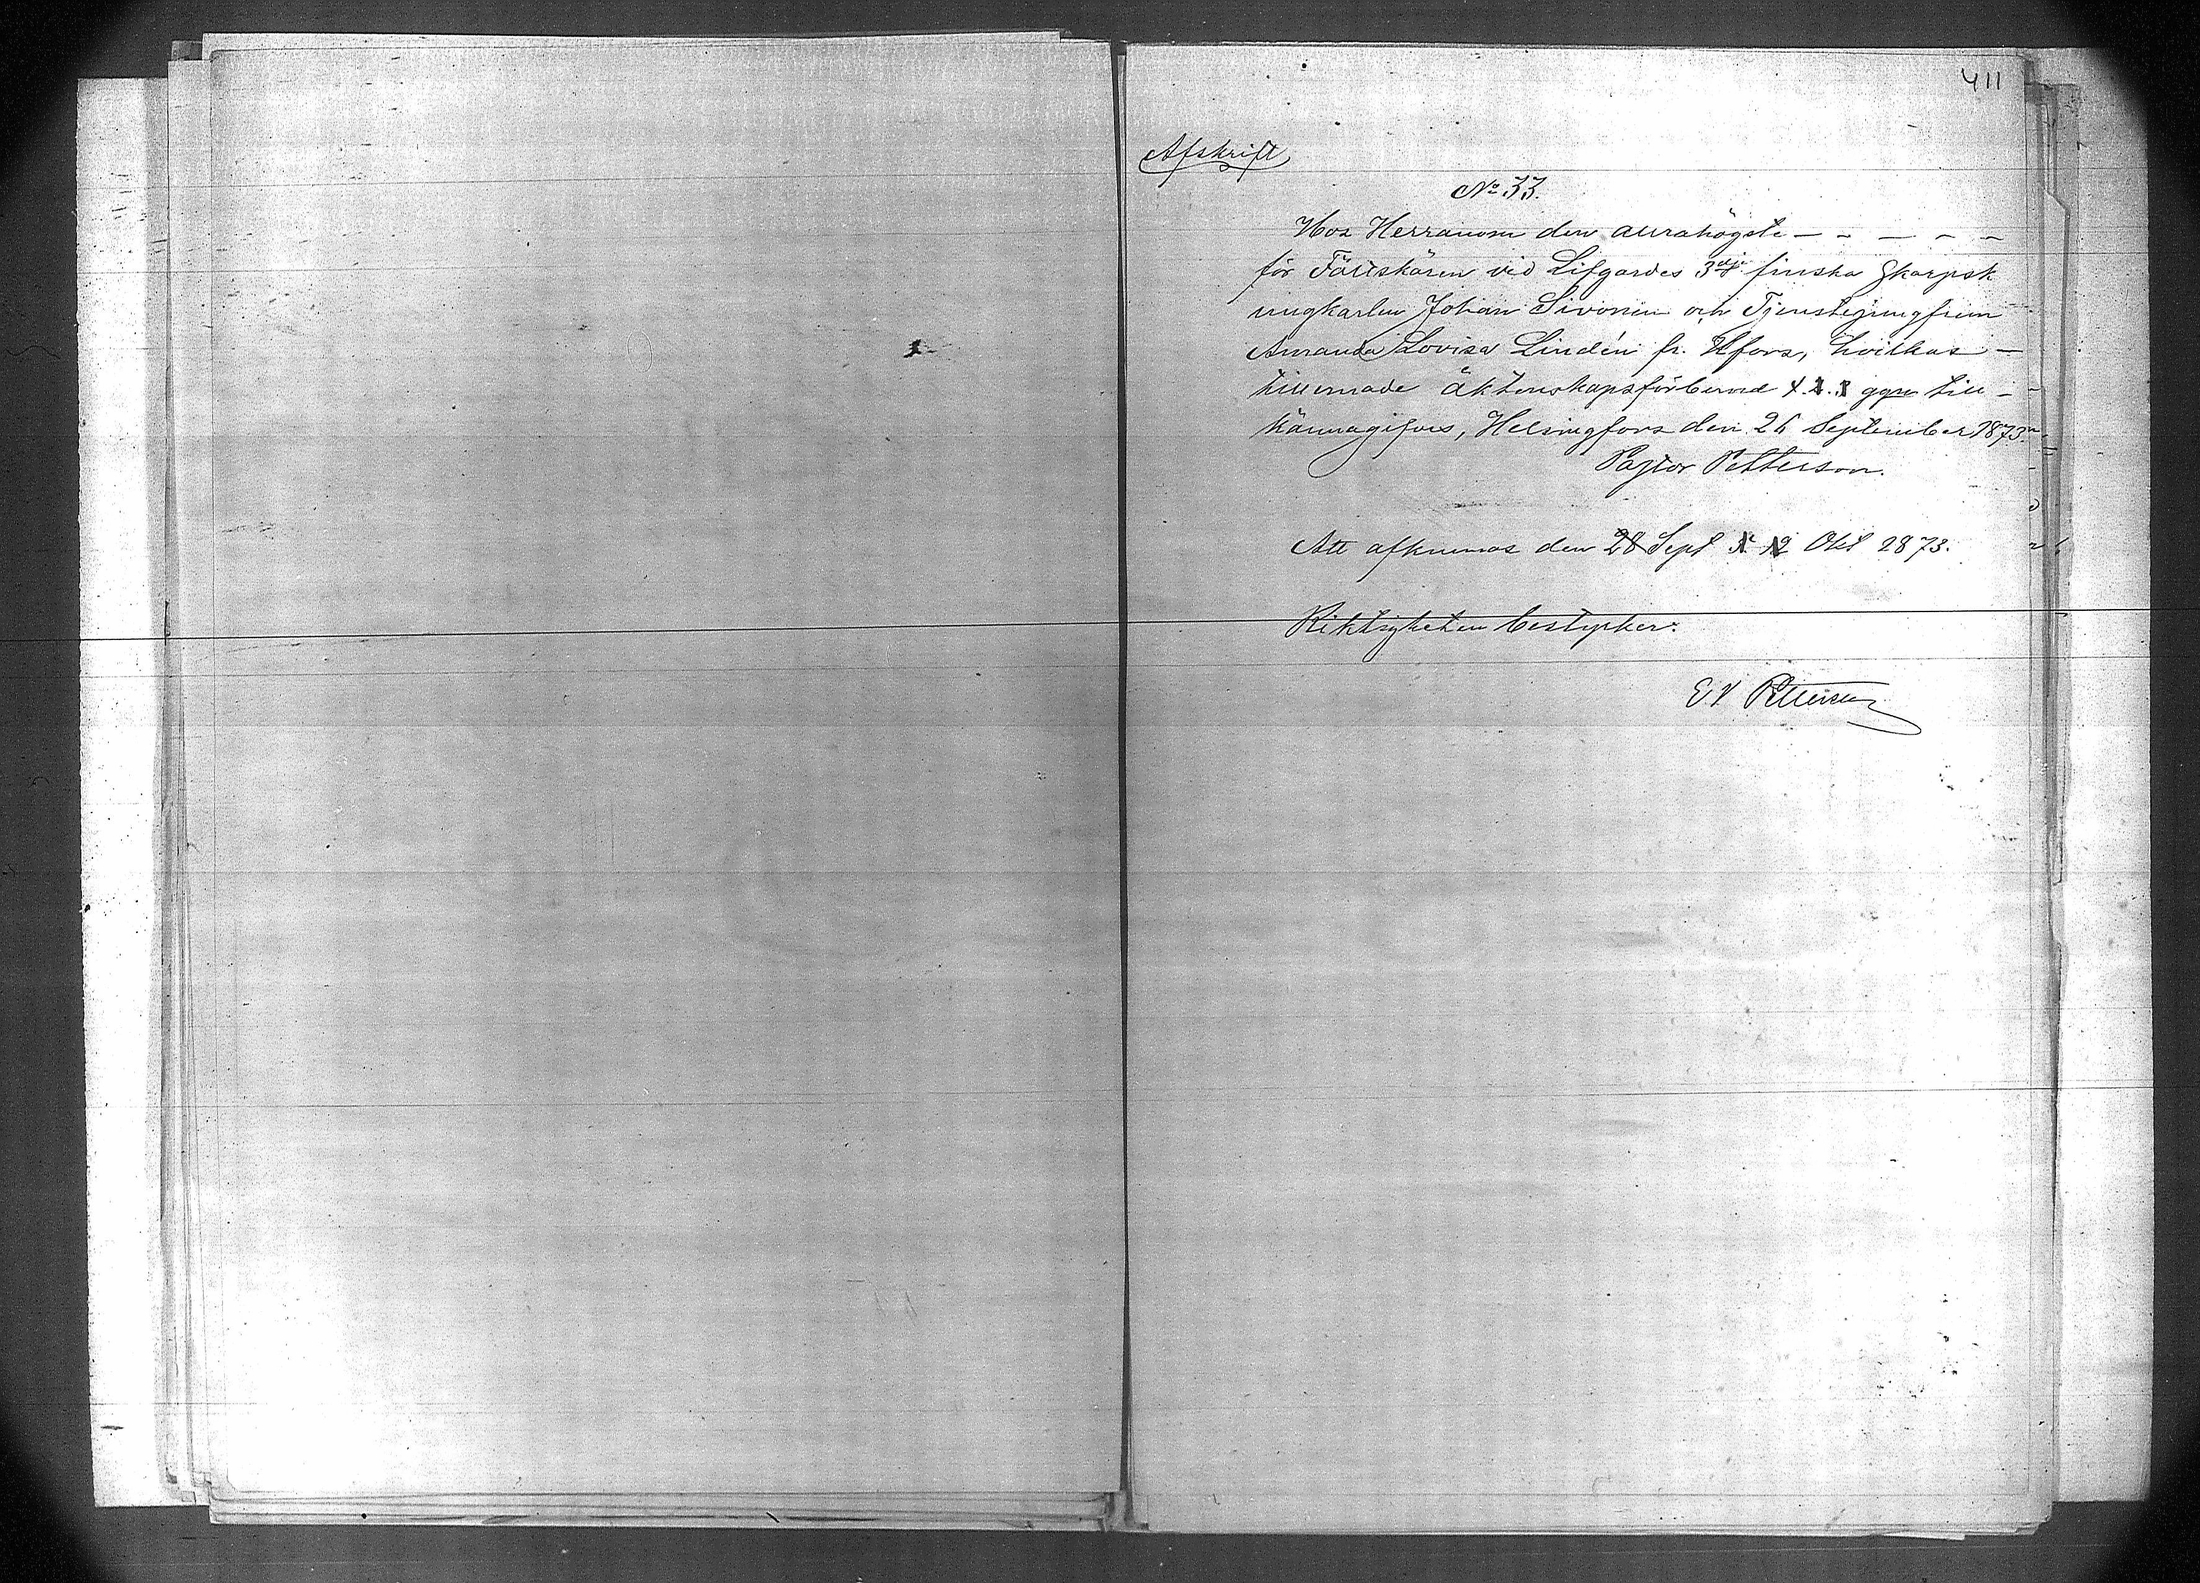 411
Afskrift
No 33.
Hos Herranom den allrahögste — - — - -
för Fältskären vid Lifgardes 3dje finska Skarpsk
ungkarlen Johan Sivonen och Tjenstejungfrun
Amanda Lovisa Lindén fr. Hfors, hvilkas —
tillernade äktenskapsförbund 1. 2. 3 ggn till -
kännagifves, Helsingfors den 26 September 1873.
Pastor Petterson.
Att afkunnas den 28 Sept 5 12 Okt 1873.
Riktigheten bestyrker:
Petterson